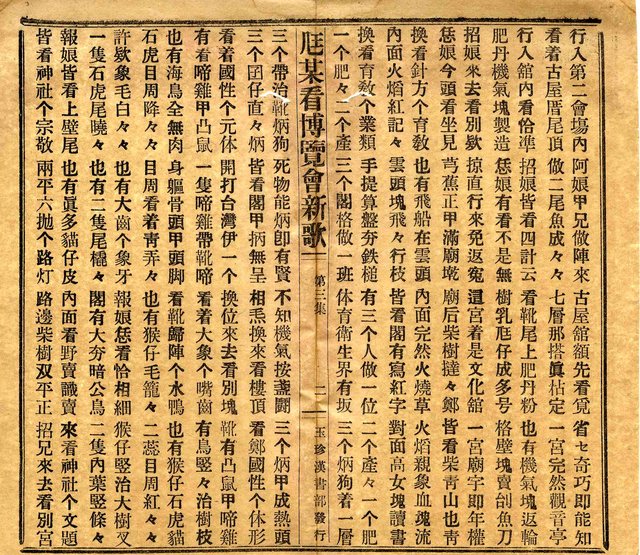 行入第二會塲內 阿娘甲兄做陣來 古屋舘額先看覓 省乜奇巧即能知
看着古屋厝尾頂 做二尾魚成々々 七層那搭眞枯定 一宮完然觀音亭
行入舘內看恰準 招娘皆看四計云 看靴尾上肥丹粉 也有機氣塊返輪
肥丹機氣塊製造 恁娘有看不是無 樹乳尫仔成多号 格壁塊賣刣魚刀
招娘來去看別欵 掠直行來免返寃 這宮着是文化舘 一宮廟字即年權
恁娘今頭看坐見 芎蕉正甲滿廟墘 廟后柴樹撻々鄭 皆看柴靑山也靑
換看針方个育教 也有飛船在雲頭 內面完然火燒草 火熖親象血塊流
內面火熖紅記々 雲頭塊飛々行枝 皆看閣有寫紅字 對面高女塊讀書
換看育教个業類 手提算盤夯鉄槌 有三个人做一位 二个產々一个肥
一个肥々二个產 三个閣格做一班 体育衛生界有坂 三个炳狗着一層
尫某看博覽會新歌 第三集 二 玉珍漢書部發行
三个帶治靴炳狗 死物能炳卽有賢 不知機氣按盞鬪 三个炳甲成熱頭
三个囝仔直々炳 皆看閣甲柄無呈 相𤆬換來看樓頂 看鄭國性个体形
看着國性个元体 開打台灣伊一个 換位來去看別塊 靴有凸鼠甲啼雞
有看啼雞甲凸鼠 一隻啼雞帶靴啼 看着大象个嘴齒 有鳥竪々治樹枝
也有海鳥全無肉 身軀骨頭甲頭脚 看靴歸陣个水鴨 也有猴仔石虎貓
石虎目周降々々 目周看着靑弄々 也有猴仔毛籠々 二蕊目周紅々々
許欵象毛白々々 也有大齒个象牙 報娘恁看恰相細 猴仔竪治大樹杈
一隻石虎尾曉々 也有二隻尾橇々 閣有大夯暗公鳥 二隻內葉竪條々
報娘皆看上壁尾 也有眞多貓仔皮 內面看野賣識賣 來看神社个文題
皆看神社个宗敬 兩平六抛个路灯 路邊柴樹双平正 招兄來去看別宮